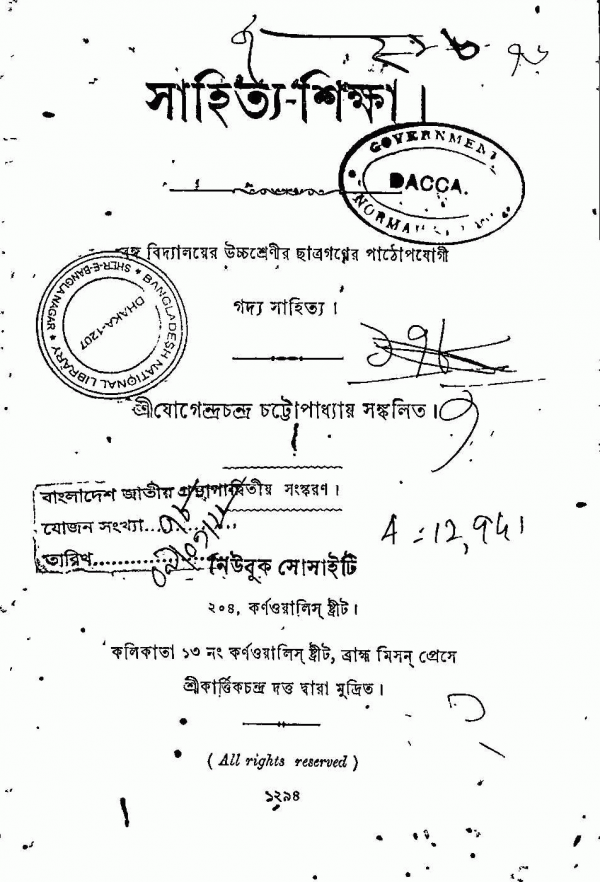 সাহিত্য-শিক্ষা।
GOVERNMENT
DACCA.
NORMAL
বঙ্গ বিদ্যালয়ের উচ্চশ্রেণীর ছাত্রগণের পাঠোপযোগী
গদ্য সাহিত্য।
BANGLADESH NATIONAL LIBRARY ★ SHER-E-BANGLA NAGAR ★
DHAKA-1207
শ্রীযোগেন্দ্রচন্দ্র চট্টোপাধ্যায় সঙ্কলিত।
দ্বিতীয় সংস্করণ।
বাংলাদেশ জাতীয় গ্রন্থাগার
যোজন সংখ্যা
তারিখ
নিউবুক সোসাইটি
২০৪, কর্ণওয়ালিস্ ষ্ট্রীট।
কলিকাতা ১৩ নং কর্ণওয়ালিস্ ষ্ট্রীট, ব্রাহ্ম মিসন্ প্রেসে
শ্রীকার্ত্তিকচন্দ্র দত্ত দ্বারা মুদ্রিত।
( All rights reserved )
১২৯৪